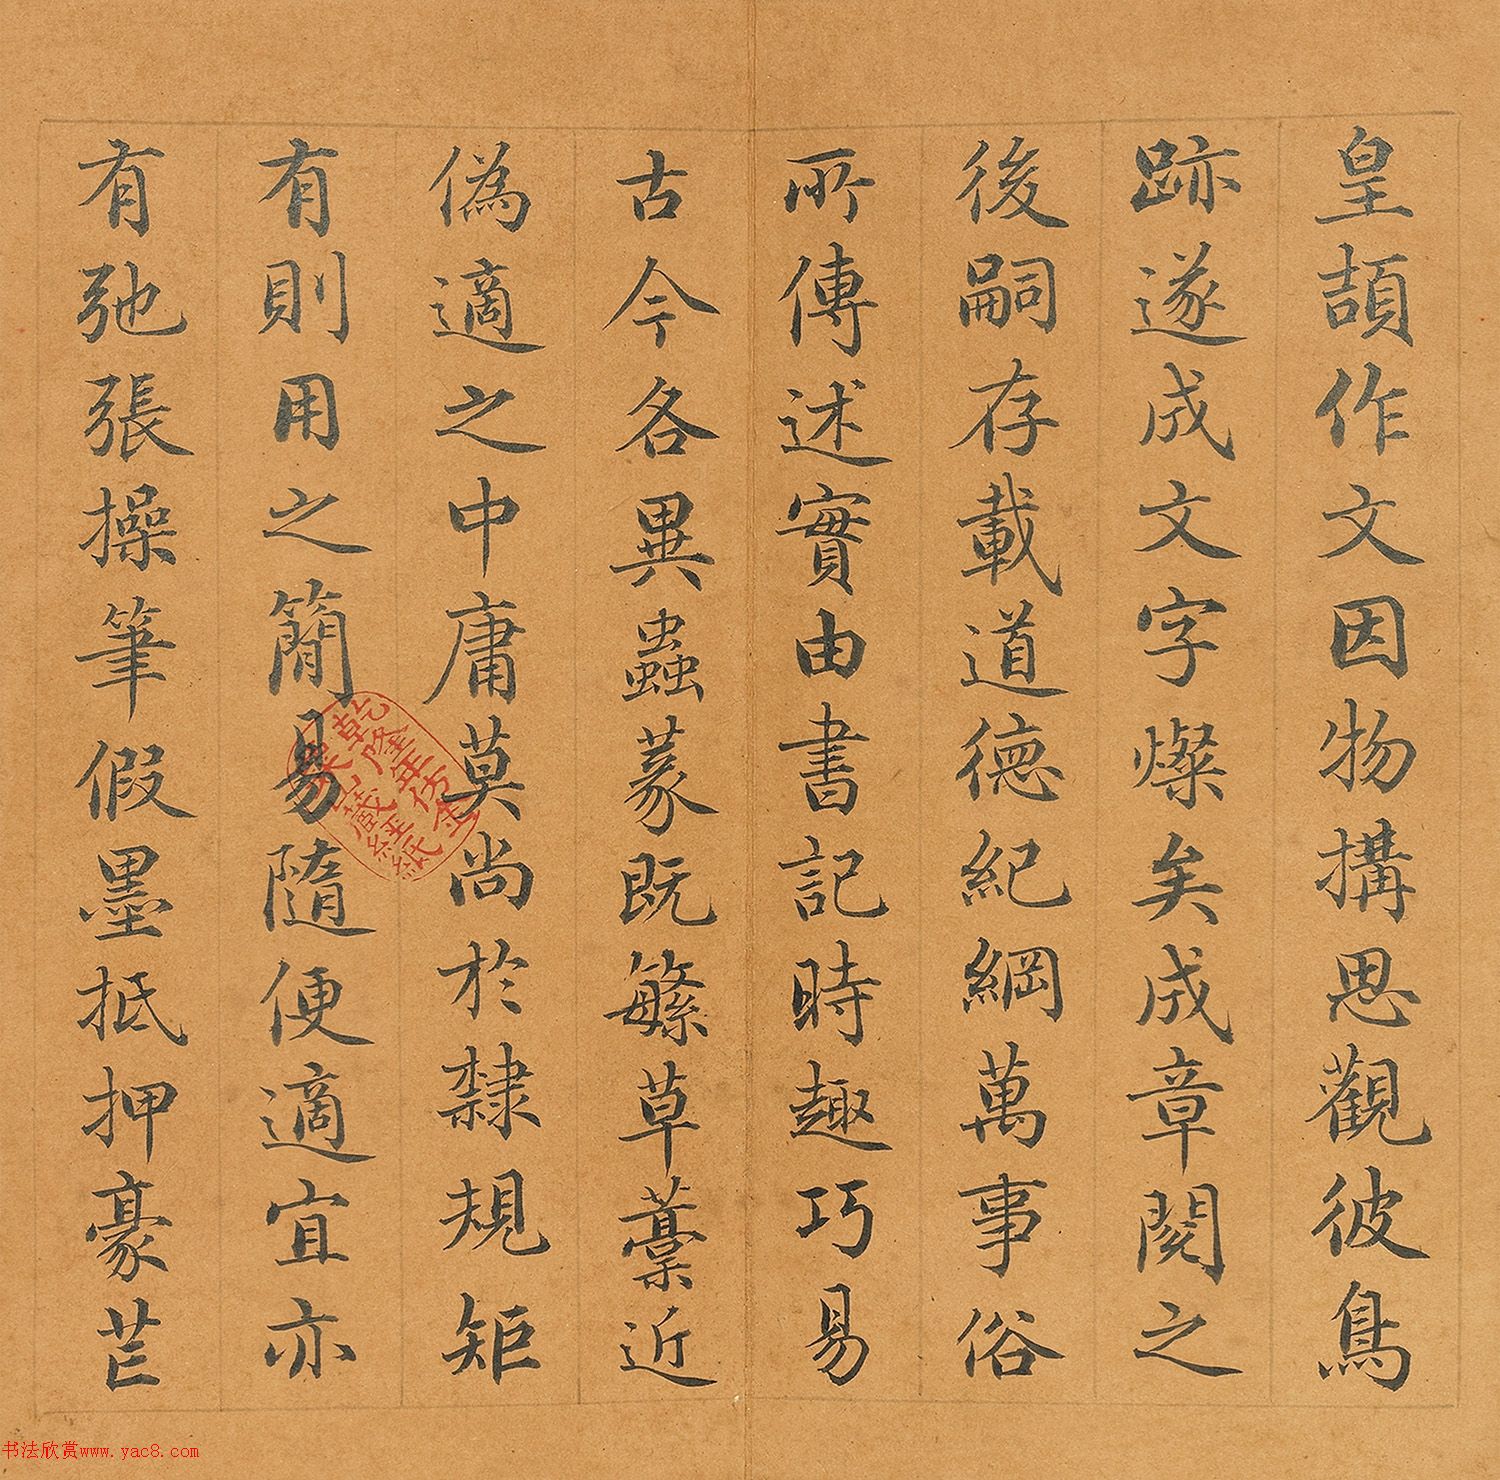 皇頡作文因物搆思觀彼鳥
跡遂成文字燦矣成章閱之
後嗣存載道德紀綱萬事俗
所傳述實由書記時趣巧易
古今各異蟲篆既繁草藁近
偽適之中庸莫尚於隸規矩
有則用之簡易隨便適宜亦
有弛張操筆假墨抵押豪芒
乾隆年仿金粟山藏經紙
书法欣赏www.yac8.com